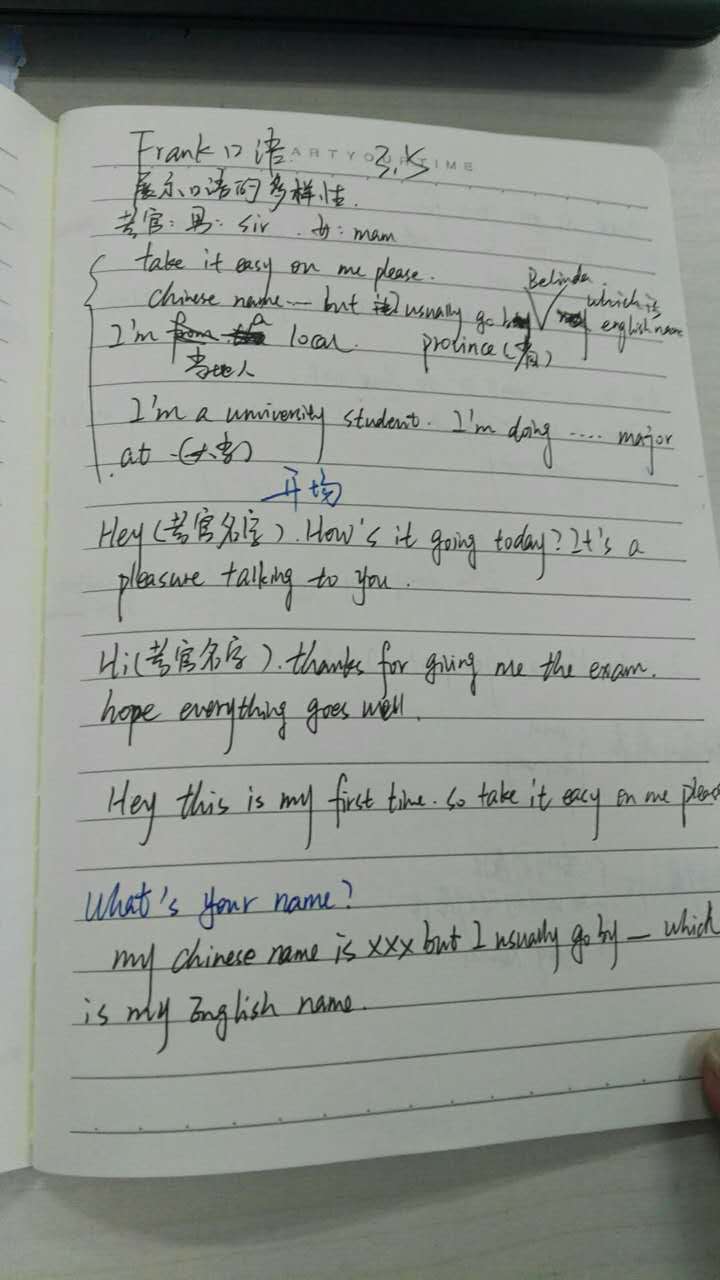 Frank 口语 3.15
ARTYOURTIME
展示口语的多样性.
考官: 男: sir . 女: mam
take it easy on me please.
Belinda
chinese name — but I usually go by which is english name
I'm a local. province (省)
当地人
I'm a university student. I'm doing .... major
at (大学)
开场
Hey (考官名字). How's it going today? It's a
pleasure talking to you.
Hi (考官名字). thanks for giving me the exam.
hope everything goes well.
Hey this is my first time. so take it easy on me pleas
What's your name?
my chinese name is xxx but I usually go by — which
is my English name.